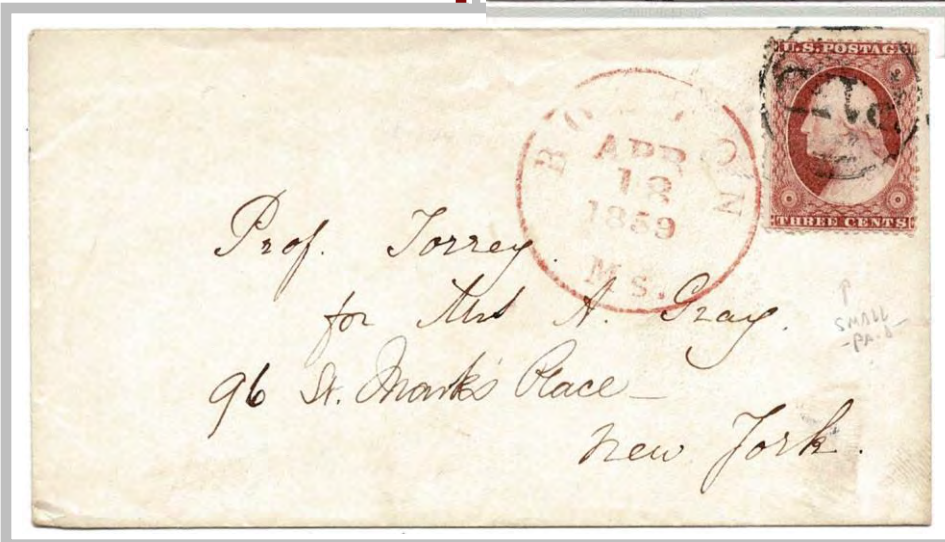 U.S. POSTAGE
PAID
THREE CENTS
BOSTON
APR
18
1859
MS.
Prof. Torrey.
for Mrs A. Gray.
96 St. Mark's Place
New York.
P
SMALL
-PAID-